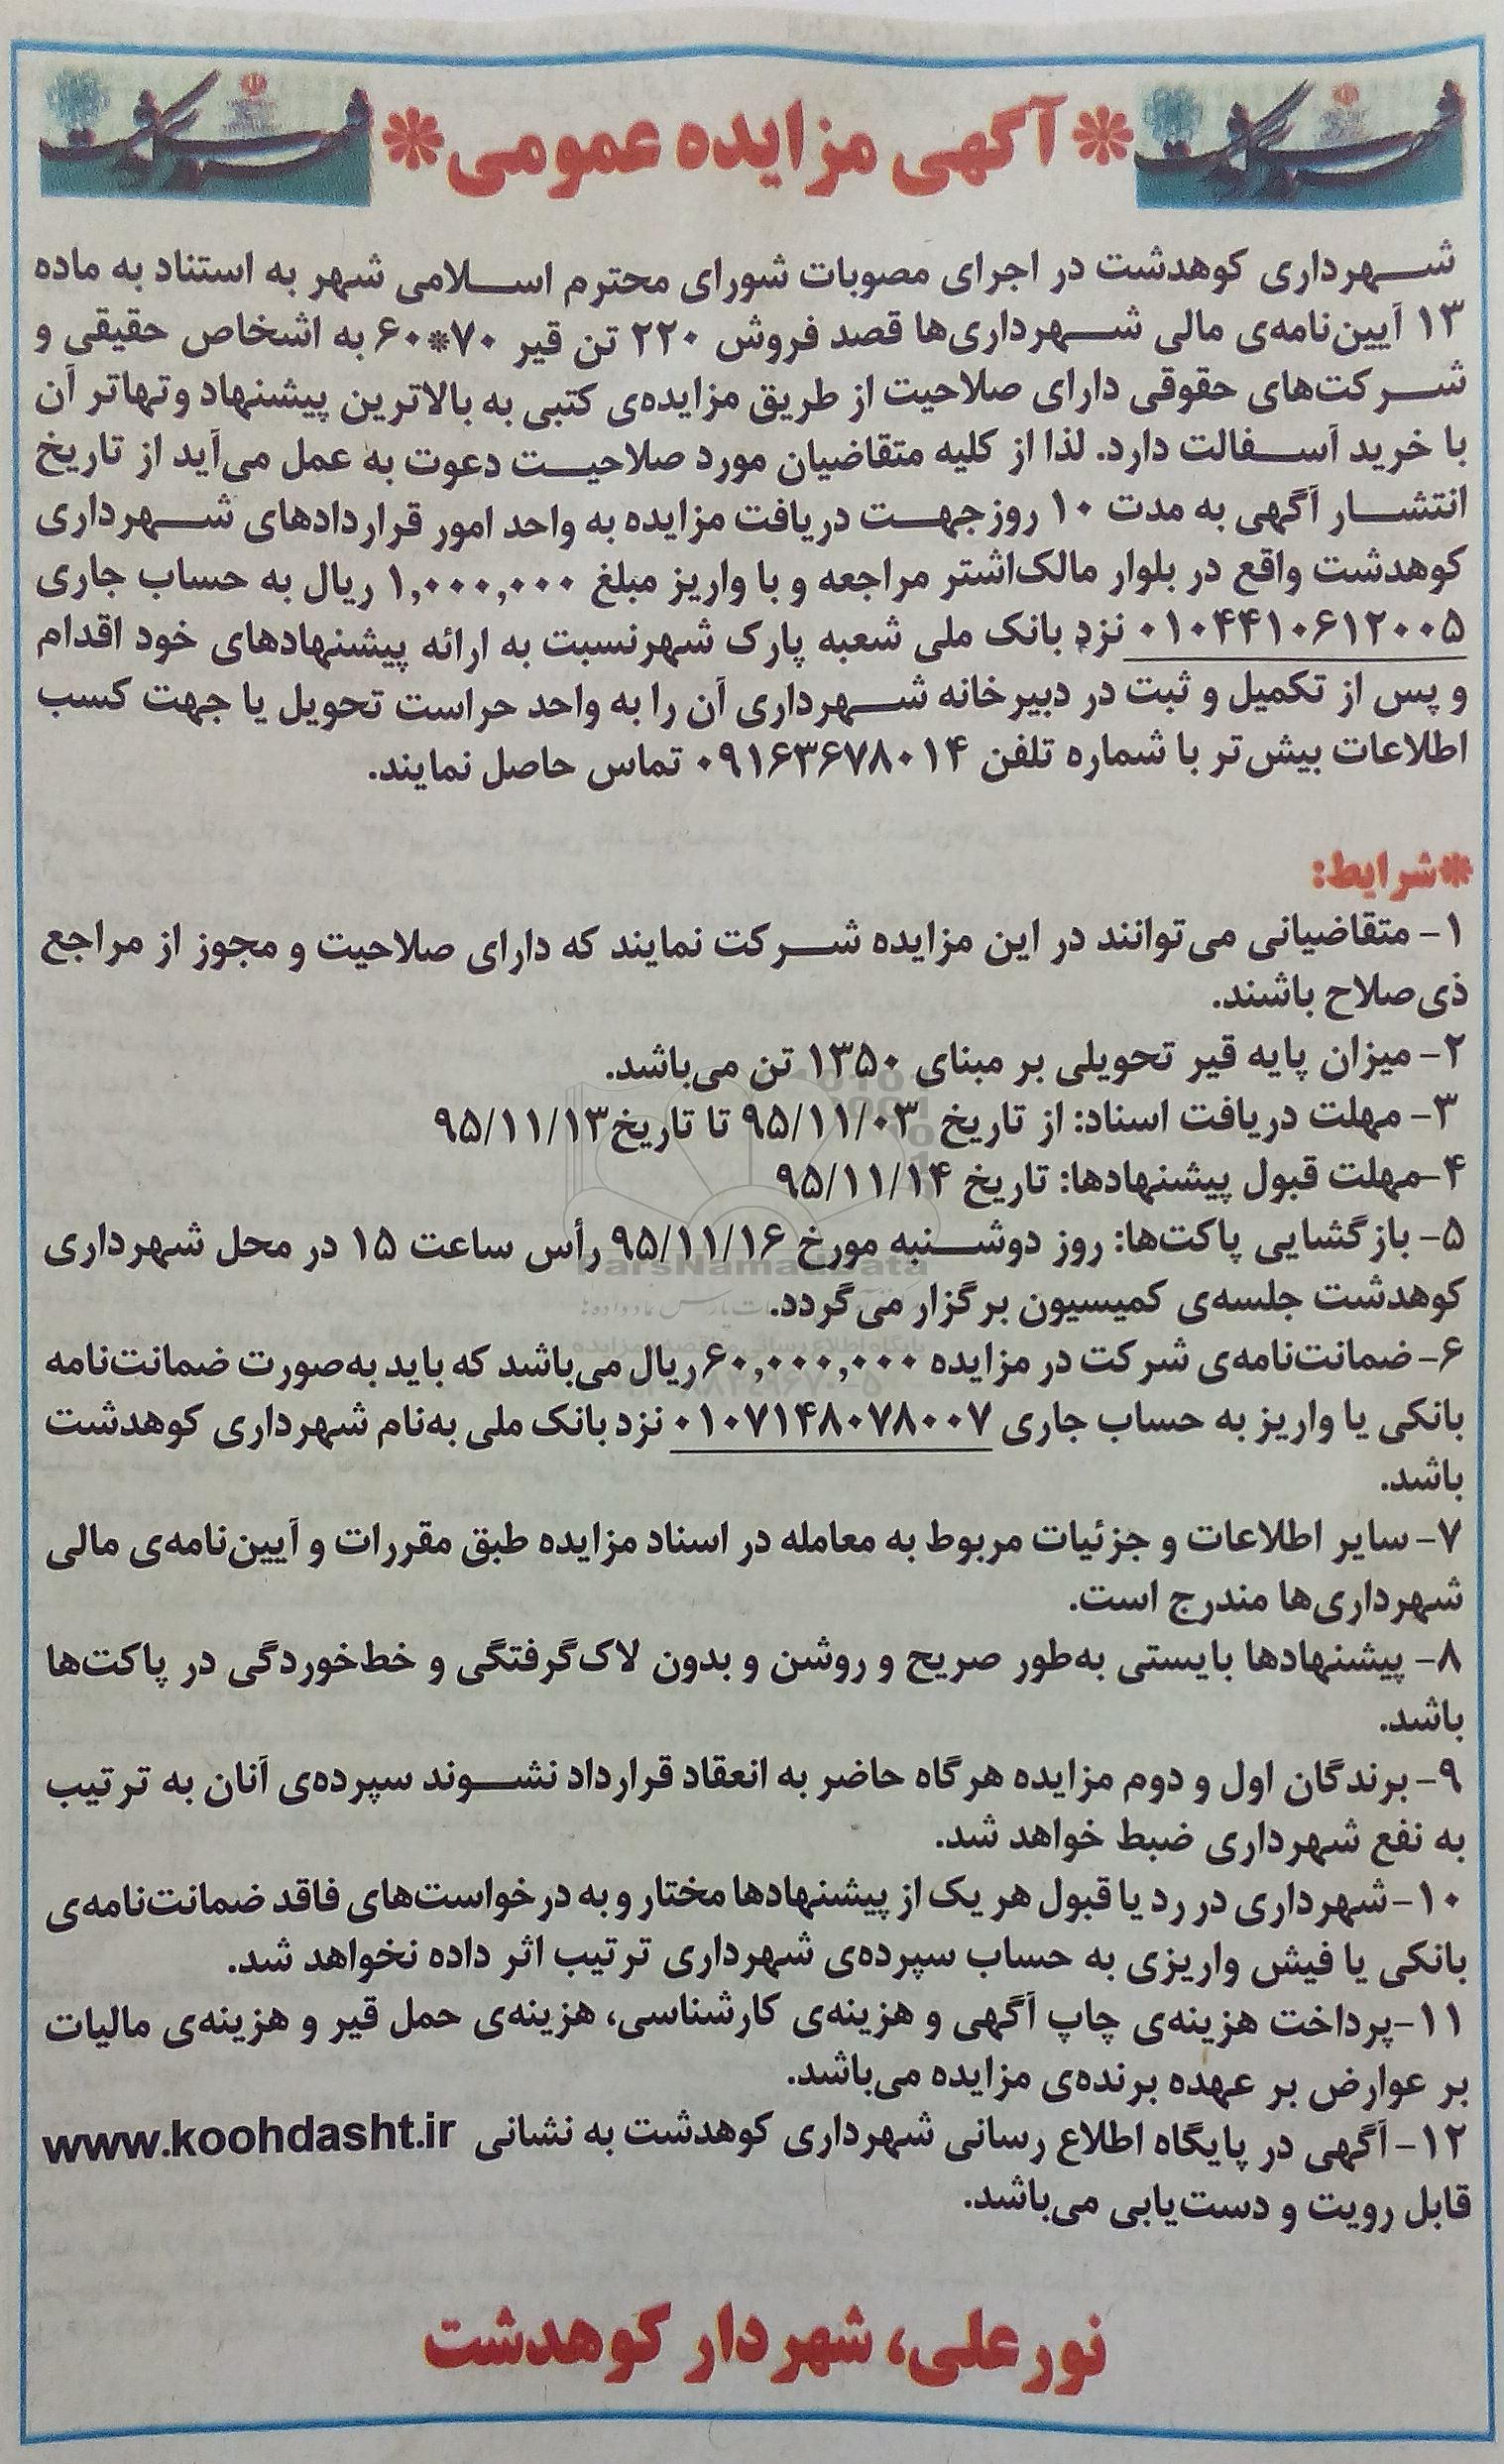 *آگهی مزایده عمومی*
شهرداری کوهدشت در اجرای مصوبات شورای محترم اسلامی شهر به استناد به ماده
۱۳ آیین‌نامه‌ی مالی شهرداری‌ها قصد فروش ۲۲۰ تن قیر ۷۰*۶۰ به اشخاص حقیقی و
شرکت‌های حقوقی دارای صلاحیت از طریق مزایده‌ی کتبی به بالاترین پیشنهاد و تهاتر آن
با خرید آسفالت دارد. لذا از کلیه متقاضیان مورد صلاحیت دعوت به عمل می‌آید از تاریخ
انتشار آگهی به مدت ۱۰ روز جهت دریافت مزایده به واحد امور قراردادهای شهرداری
کوهدشت واقع در بلوار مالک‌اشتر مراجعه و با واریز مبلغ ۱,۰۰۰,۰۰۰ ریال به حساب جاری
۰۱۰۴۴۱۰۶۱۲۰۰۵ نزد بانک ملی شعبه پارک شهر نسبت به ارائه پیشنهادهای خود اقدام
و پس از تکمیل و ثبت در دبیرخانه شهرداری آن را به واحد حراست تحویل یا جهت کسب
اطلاعات بیش‌تر با شماره تلفن ۰۹۱۶۳۶۷۸۰۱۴ تماس حاصل نمایند.
*شرایط:
۱- متقاضیانی می‌توانند در این مزایده شرکت نمایند که دارای صلاحیت و مجوز از مراجع
ذی‌صلاح باشند.
۲- میزان پایه قیر تحویلی بر مبنای ۱۳۵۰ تن می‌باشد.
۳- مهلت دریافت اسناد: از تاریخ ۹۵/۱۱/۰۳ تا تاریخ۹۵/۱۱/۱۳
۴-مهلت قبول پیشنهادها: تاریخ ۹۵/۱۱/۱۴
۵- بازگشایی پاکت‌ها: روز دوشنبه مورخ ۹۵/۱۱/۱۶ رأس ساعت ۱۵ در محل شهرداری
کوهدشت جلسه‌ی کمیسیون برگزار می‌گردد.
۶- ضمانت‌نامه‌ی شرکت در مزایده ۶۰,۰۰۰,۰۰۰ ریال می‌باشد که باید به‌صورت ضمانت‌نامه
بانکی یا واریز به حساب جاری ۰۱۰۷۱۴۸۰۷۸۰۰۷ نزد بانک ملی به‌نام شهرداری کوهدشت
باشد.
۷- سایر اطلاعات و جزئیات مربوط به معامله در اسناد مزایده طبق مقررات و آیین‌نامه‌ی مالی
شهرداری‌ها مندرج است.
۸- پیشنهادها بایستی به‌طور صریح و روشن و بدون لاک‌گرفتگی و خط‌خوردگی در پاکت‌ها
باشد.
۹- برندگان اول و دوم مزایده هرگاه حاضر به انعقاد قرارداد نشوند سپرده‌ی آنان به ترتیب
به نفع شهرداری ضبط خواهد شد.
۱۰-شهرداری در رد یا قبول هر یک از پیشنهادها مختار و به درخواست‌های فاقد ضمانت‌نامه‌ی
بانکی یا فیش واریزی به حساب سپرده‌ی شهرداری ترتیب اثر داده نخواهد شد.
۱۱-پرداخت هزینه‌ی چاپ آگهی و هزینه‌ی کارشناسی، هزینه‌ی حمل قیر و هزینه‌ی مالیات
بر عوارض بر عهده برنده‌ی مزایده می‌باشد.
۱۲- آگهی در پایگاه اطلاع رسانی شهرداری کوهدشت به نشانی www.koohdasht.ir
قابل رویت و دست‌یابی می‌باشد.
نورعلی، شهردار کوهدشت